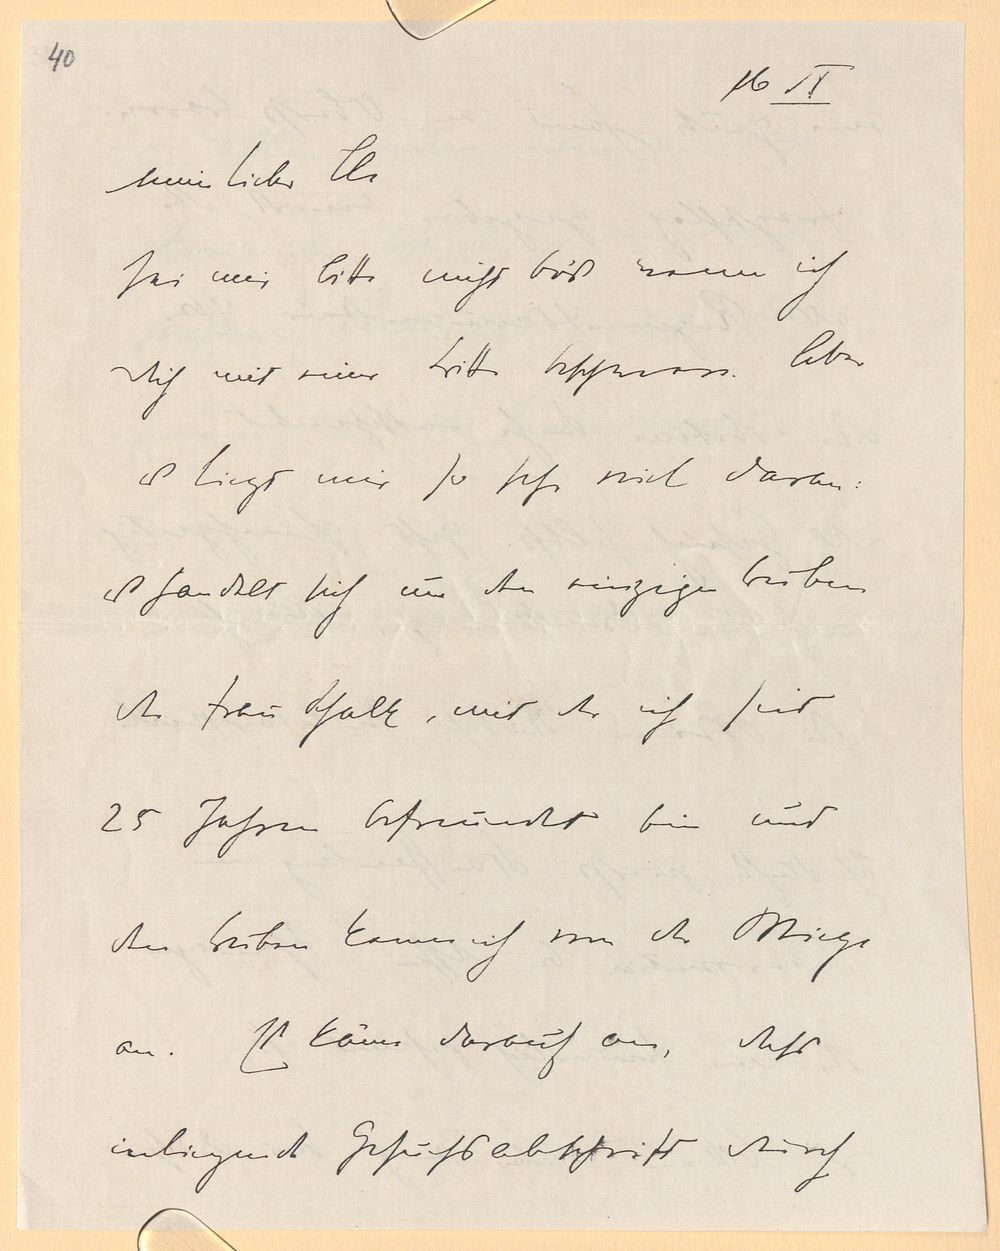 40
16 II
mein lieber
sei mir bitte nicht bös wenn ich
dich mit einer bitte beschwere. Aber
es liegt mir so sehr viel daran:
es handelt sich um den einzigen buben
der frau Schalk, mit der ich seit
25 Jahren befreundet bin und
den buben kenne ich von der Wiege
an. Es käme darauf an, dass
inliegende Gesuchsabschrift durch